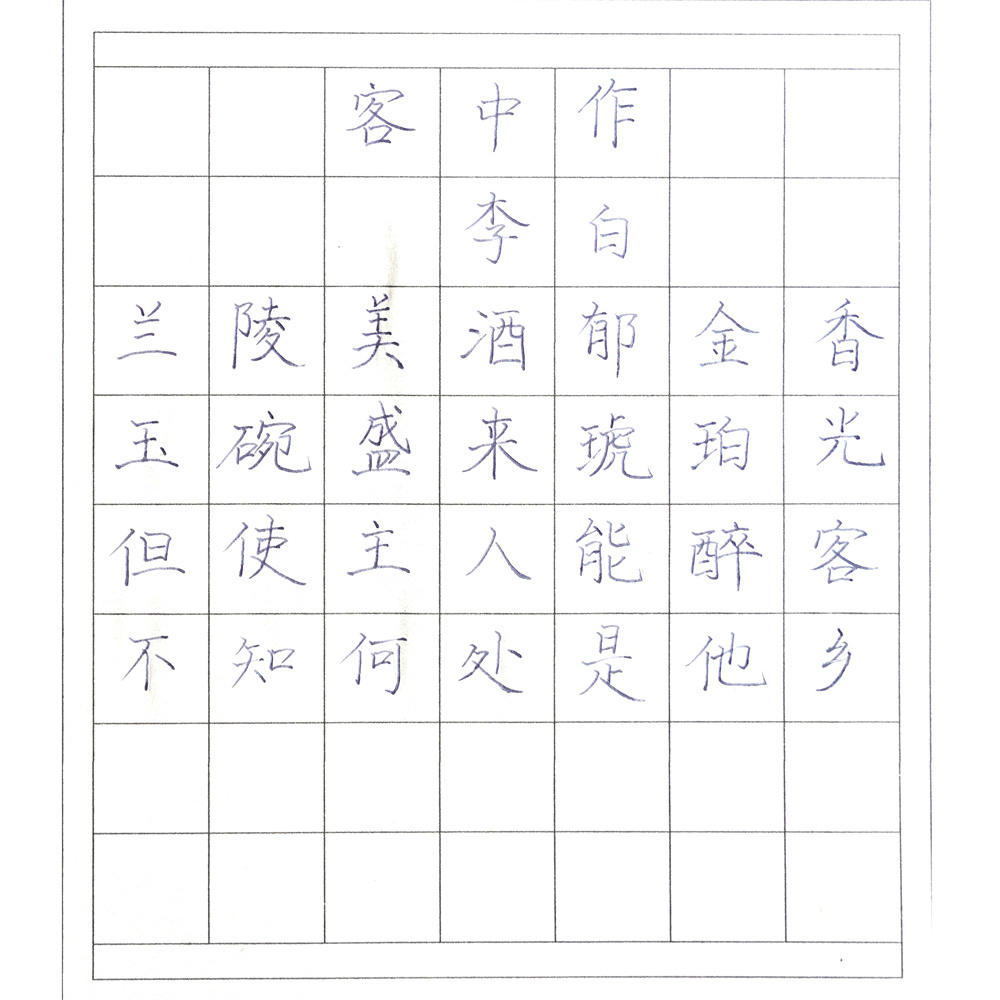 客中作
李白
兰陵美酒郁金香
玉碗盛来琥珀光
但使主人能醉客
不知何处是他乡